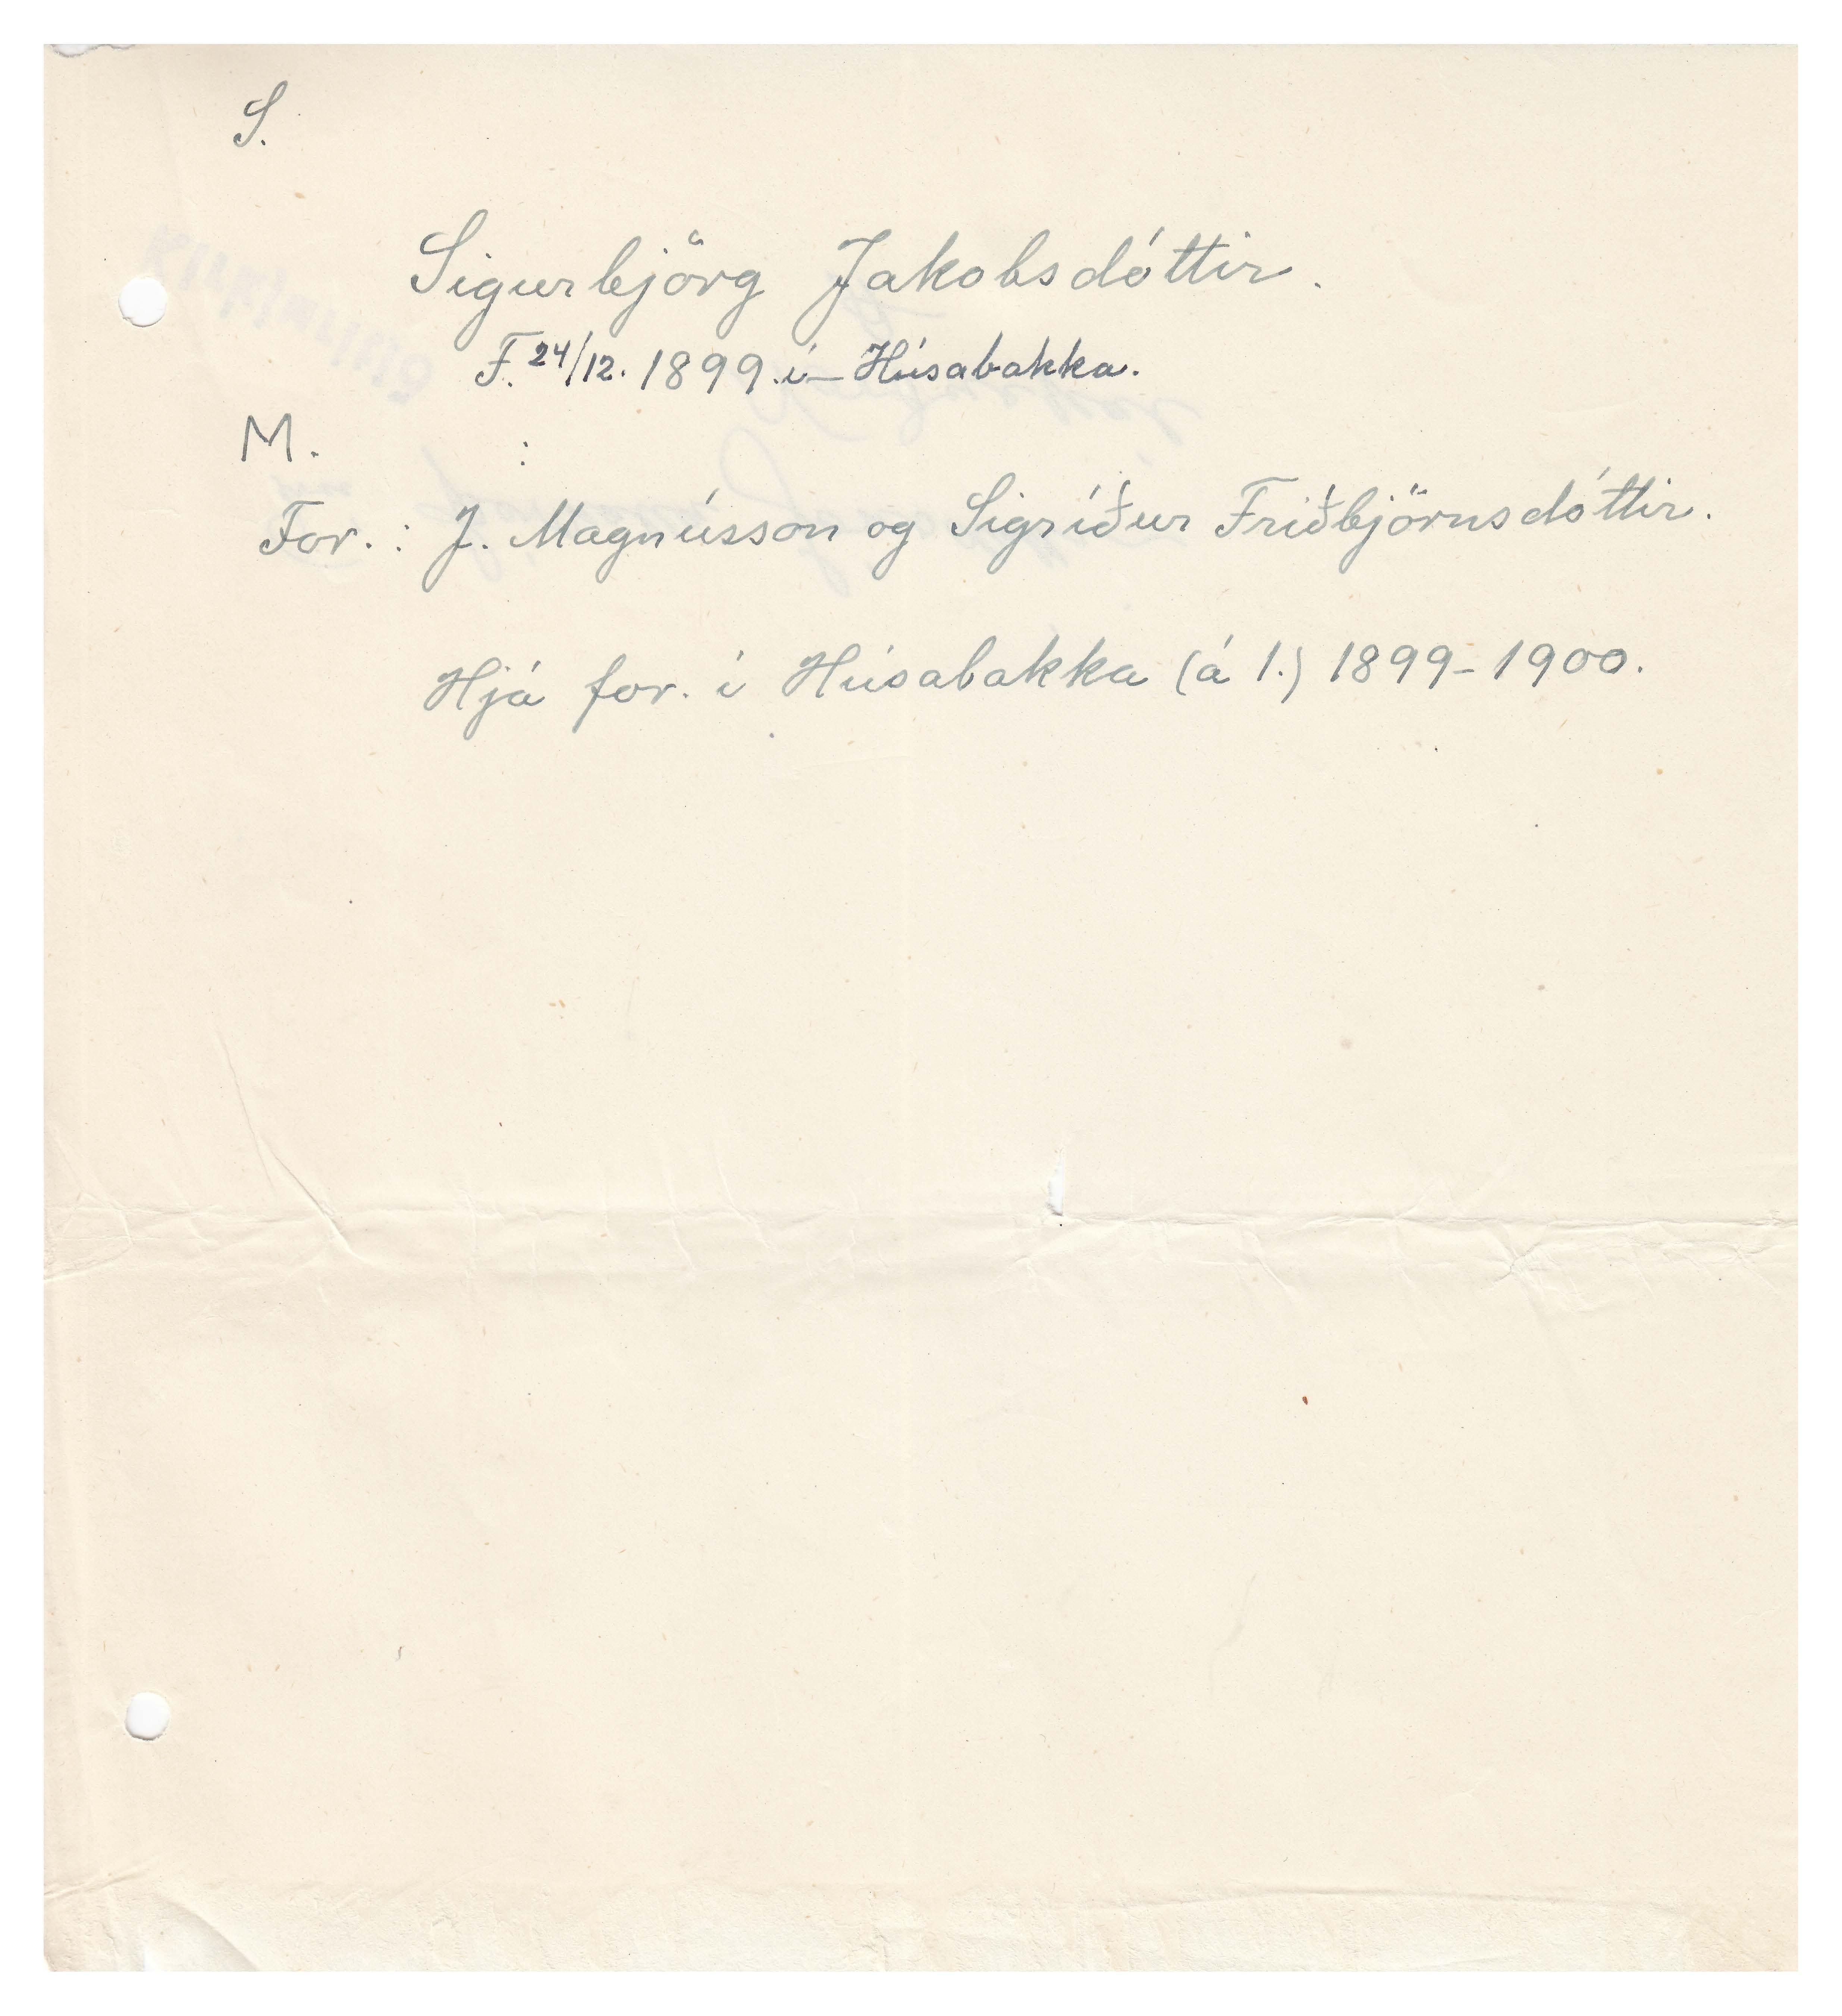 S.
Sigurbjörg Jakobsdóttir.
F. 24/12. 1899. í – Húsabakka.
M. :
For. : J. Magnússon og Sigríður Friðbjörnsdóttir.
Hjá for. í Húsabakka (á 1.) 1899-1900.